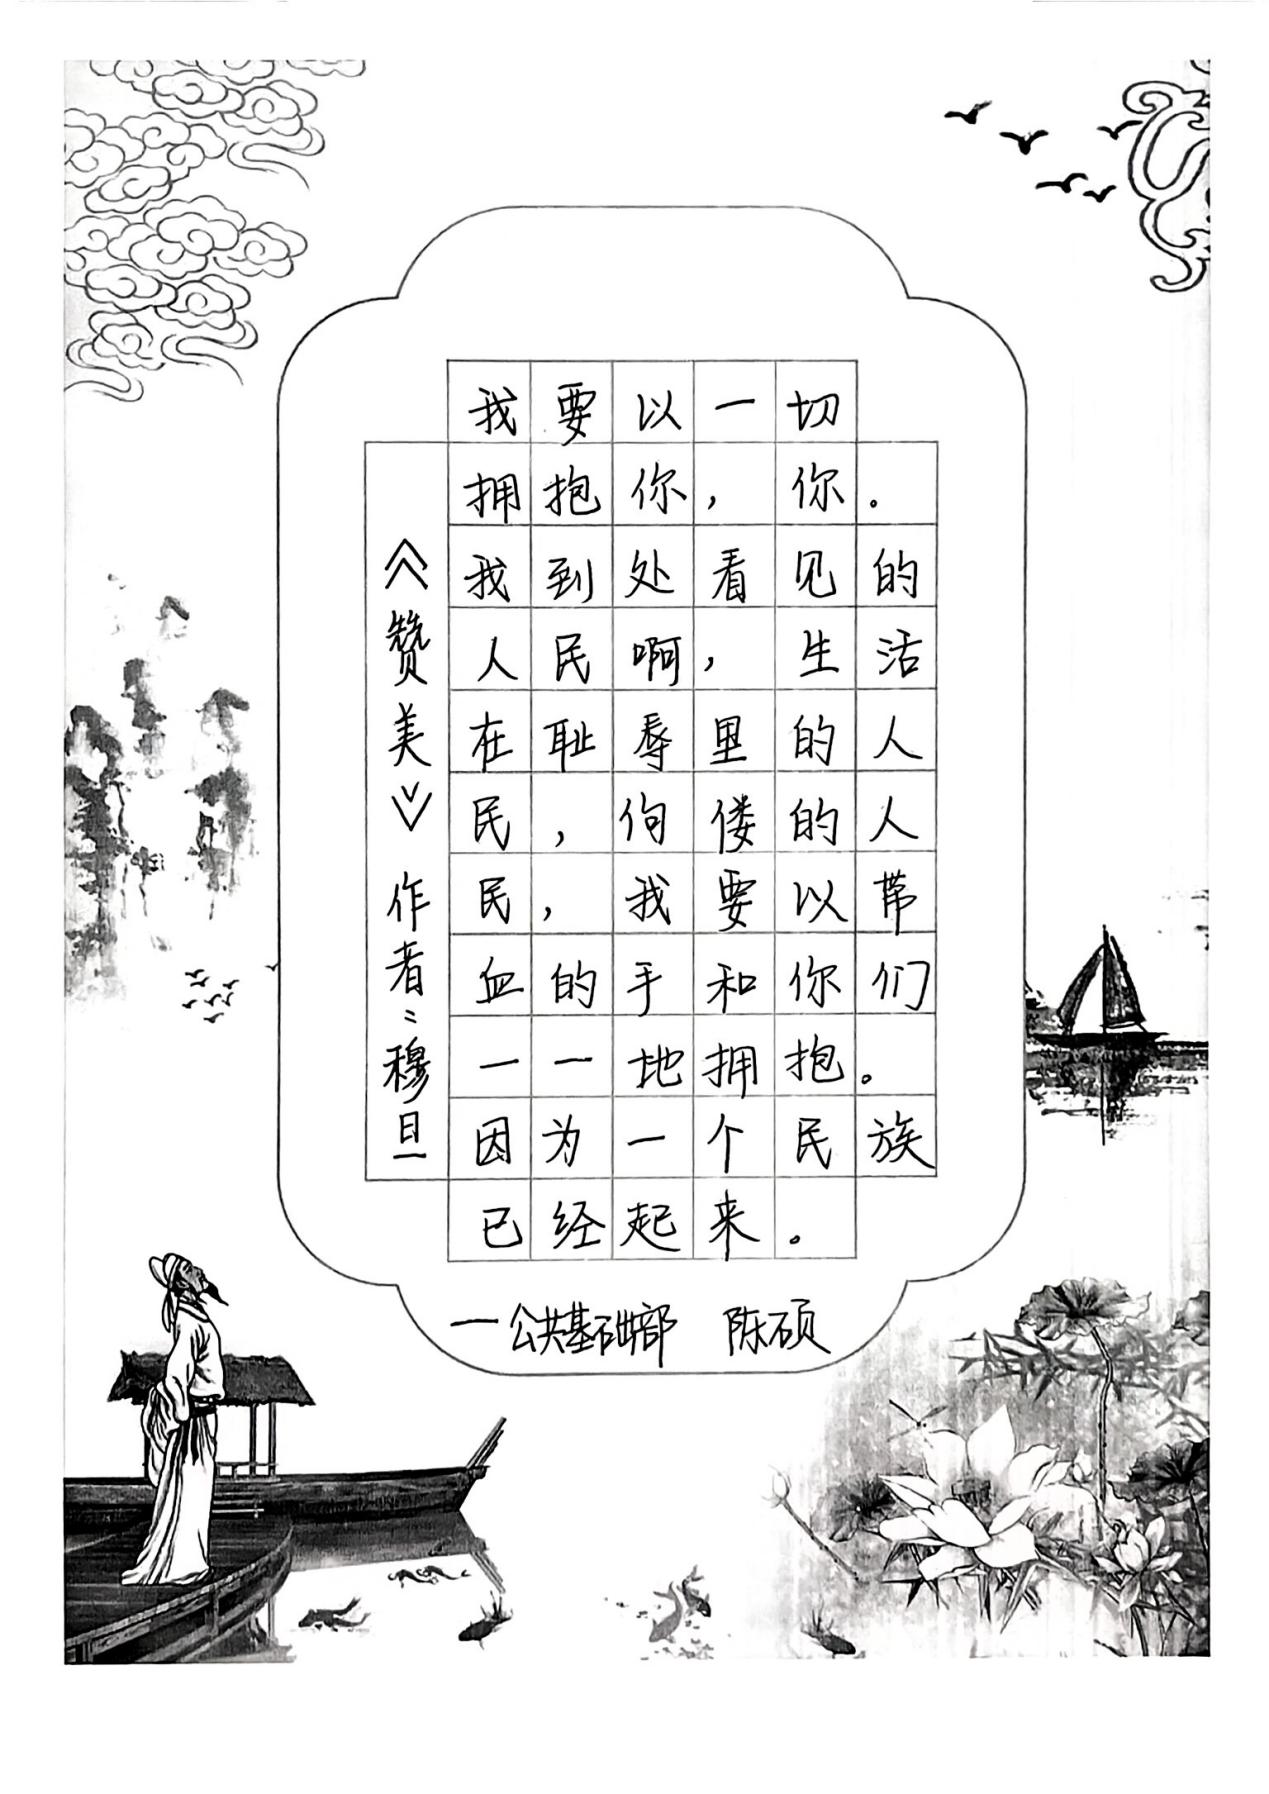 我要以一切
拥抱你，你。
我到处看见的
人民啊，生活
在耻辱里的人
民，佝偻的人
民，我要以带
血的手和你们
一一地拥抱。
因为一个民族
已经起来。
《赞美》作者：穆旦
一公共基础部 陈硕